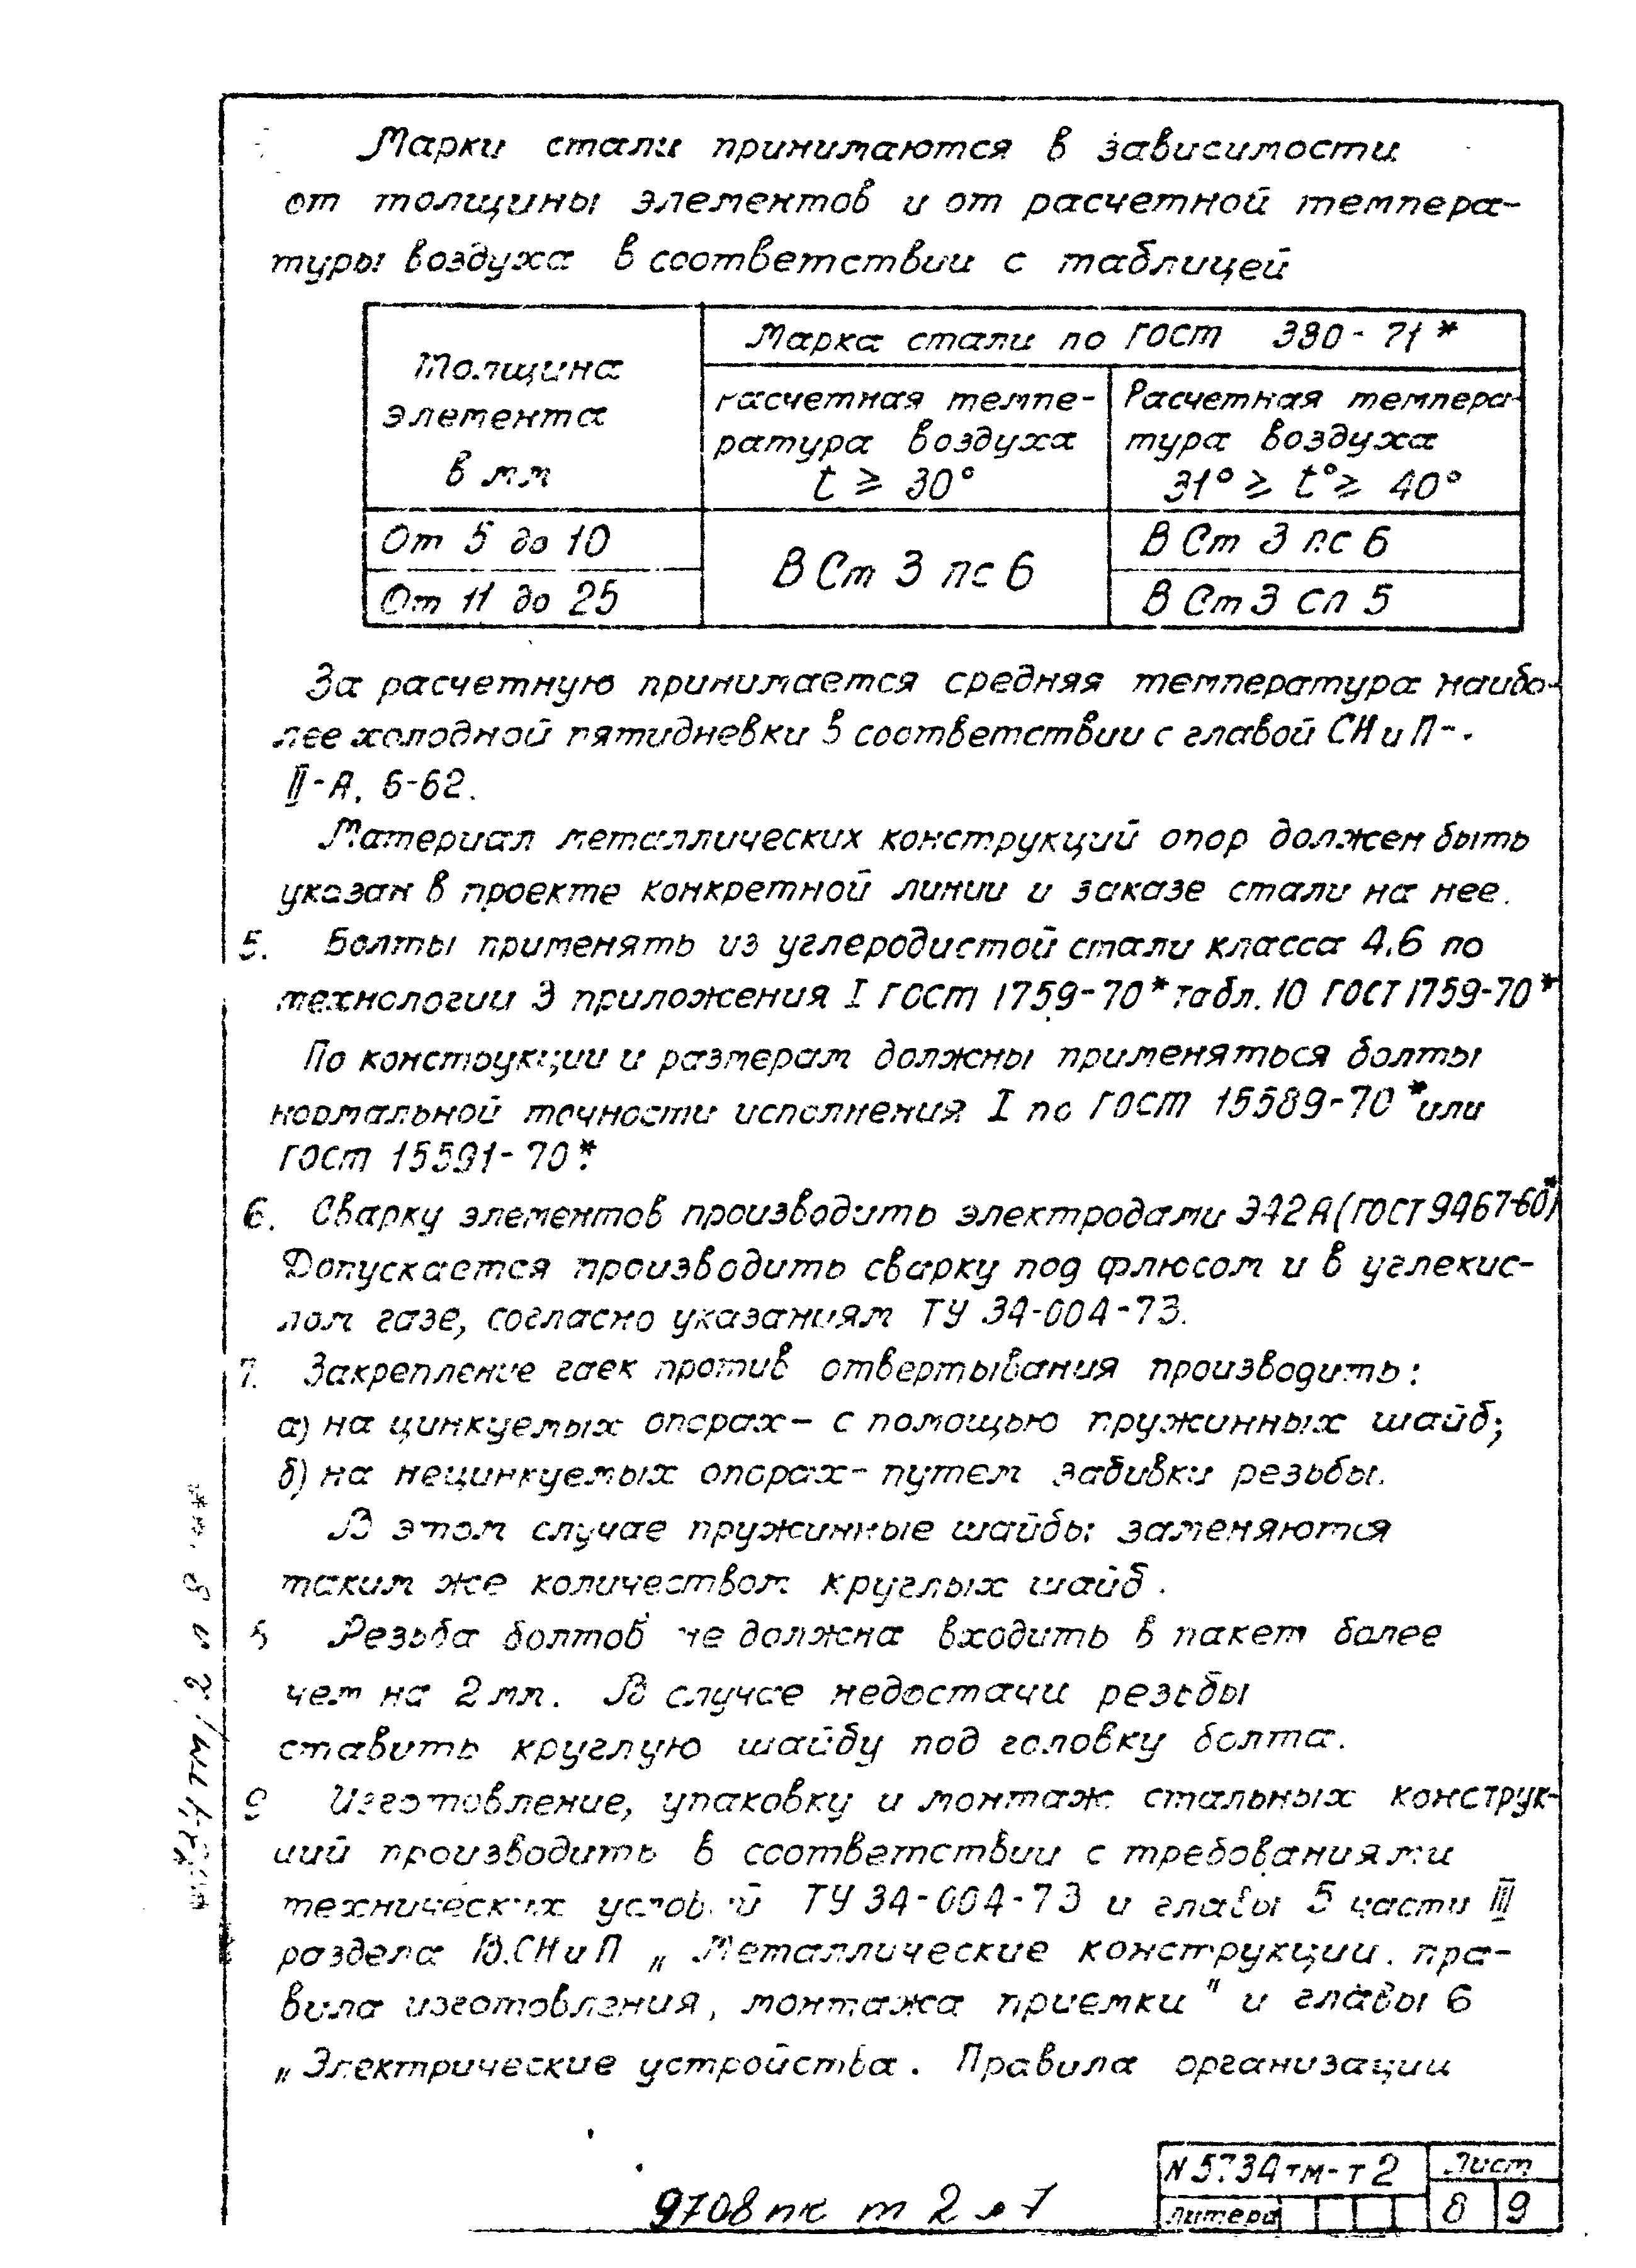 Марки стали принимаются в зависимости
от толщины элементов и от расчетной темпера-
туры воздуха в соответствии с таблицей
Толщина
элемента
в мм
Марка стали по ГОСТ 380-71*
Расчетная темпе-
ратура воздуха
t ⩾ 30°
Расчетная темпера-
тура воздуха
31° ⩾ t° ⩾ 40°
От 5 до 10
В Ст 3 пс 6
В Ст 3 пс 6
От 11 до 25
В Ст 3 сп 5
За расчетную принимается средняя температура наибо-
лее холодной пятидневки в соответствии с главой СНиП-
II-А. 6-62.
Материал металлических конструкций опор должен быть
указан в проекте конкретной линии и заказе стали на нее.
5. Болты применять из углеродистой стали класса 4.6 по
технологии 3 приложения I ГОСТ 1759-70* табл. 10 ГОСТ 1759-70*
По конструкции и размерам должны применяться болты
нормальной точности исполнения I по ГОСТ 15589-70* или
ГОСТ 15591-70*.
6. Сварку элементов производить электродами Э42А (ГОСТ 9467-60*)
Допускается производить сварку под флюсом и в углекис-
лом газе, согласно указаниям ТУ 34-004-73.
7. Закрепление гаек против отвертывания производить:
а) на цинкуемых опорах - с помощью пружинных шайб;
б) на нецинкуемых опорах - путем забивки резьбы.
В этом случае пружинные шайбы заменяются
таким же количеством круглых шайб.
Резьба болтов не должна входить в пакет более
чем на 2 мм. В случае недостачи резьбы
ставить круглую шайбу под головку болта.
9 Изготовление, упаковку и монтаж стальных конструк-
ций производить в соответствии с требованиями
технических условий ТУ 34-004-73 и главы 5 части III
раздела В. СНиП „Металлические конструкции. пра-
вила изготовления, монтажа приемки" и главы 6
„Электрические устройства. Правила организации
9708 тм т 2 л 7
N 5734тм-т2
Лист
Литера
8
9